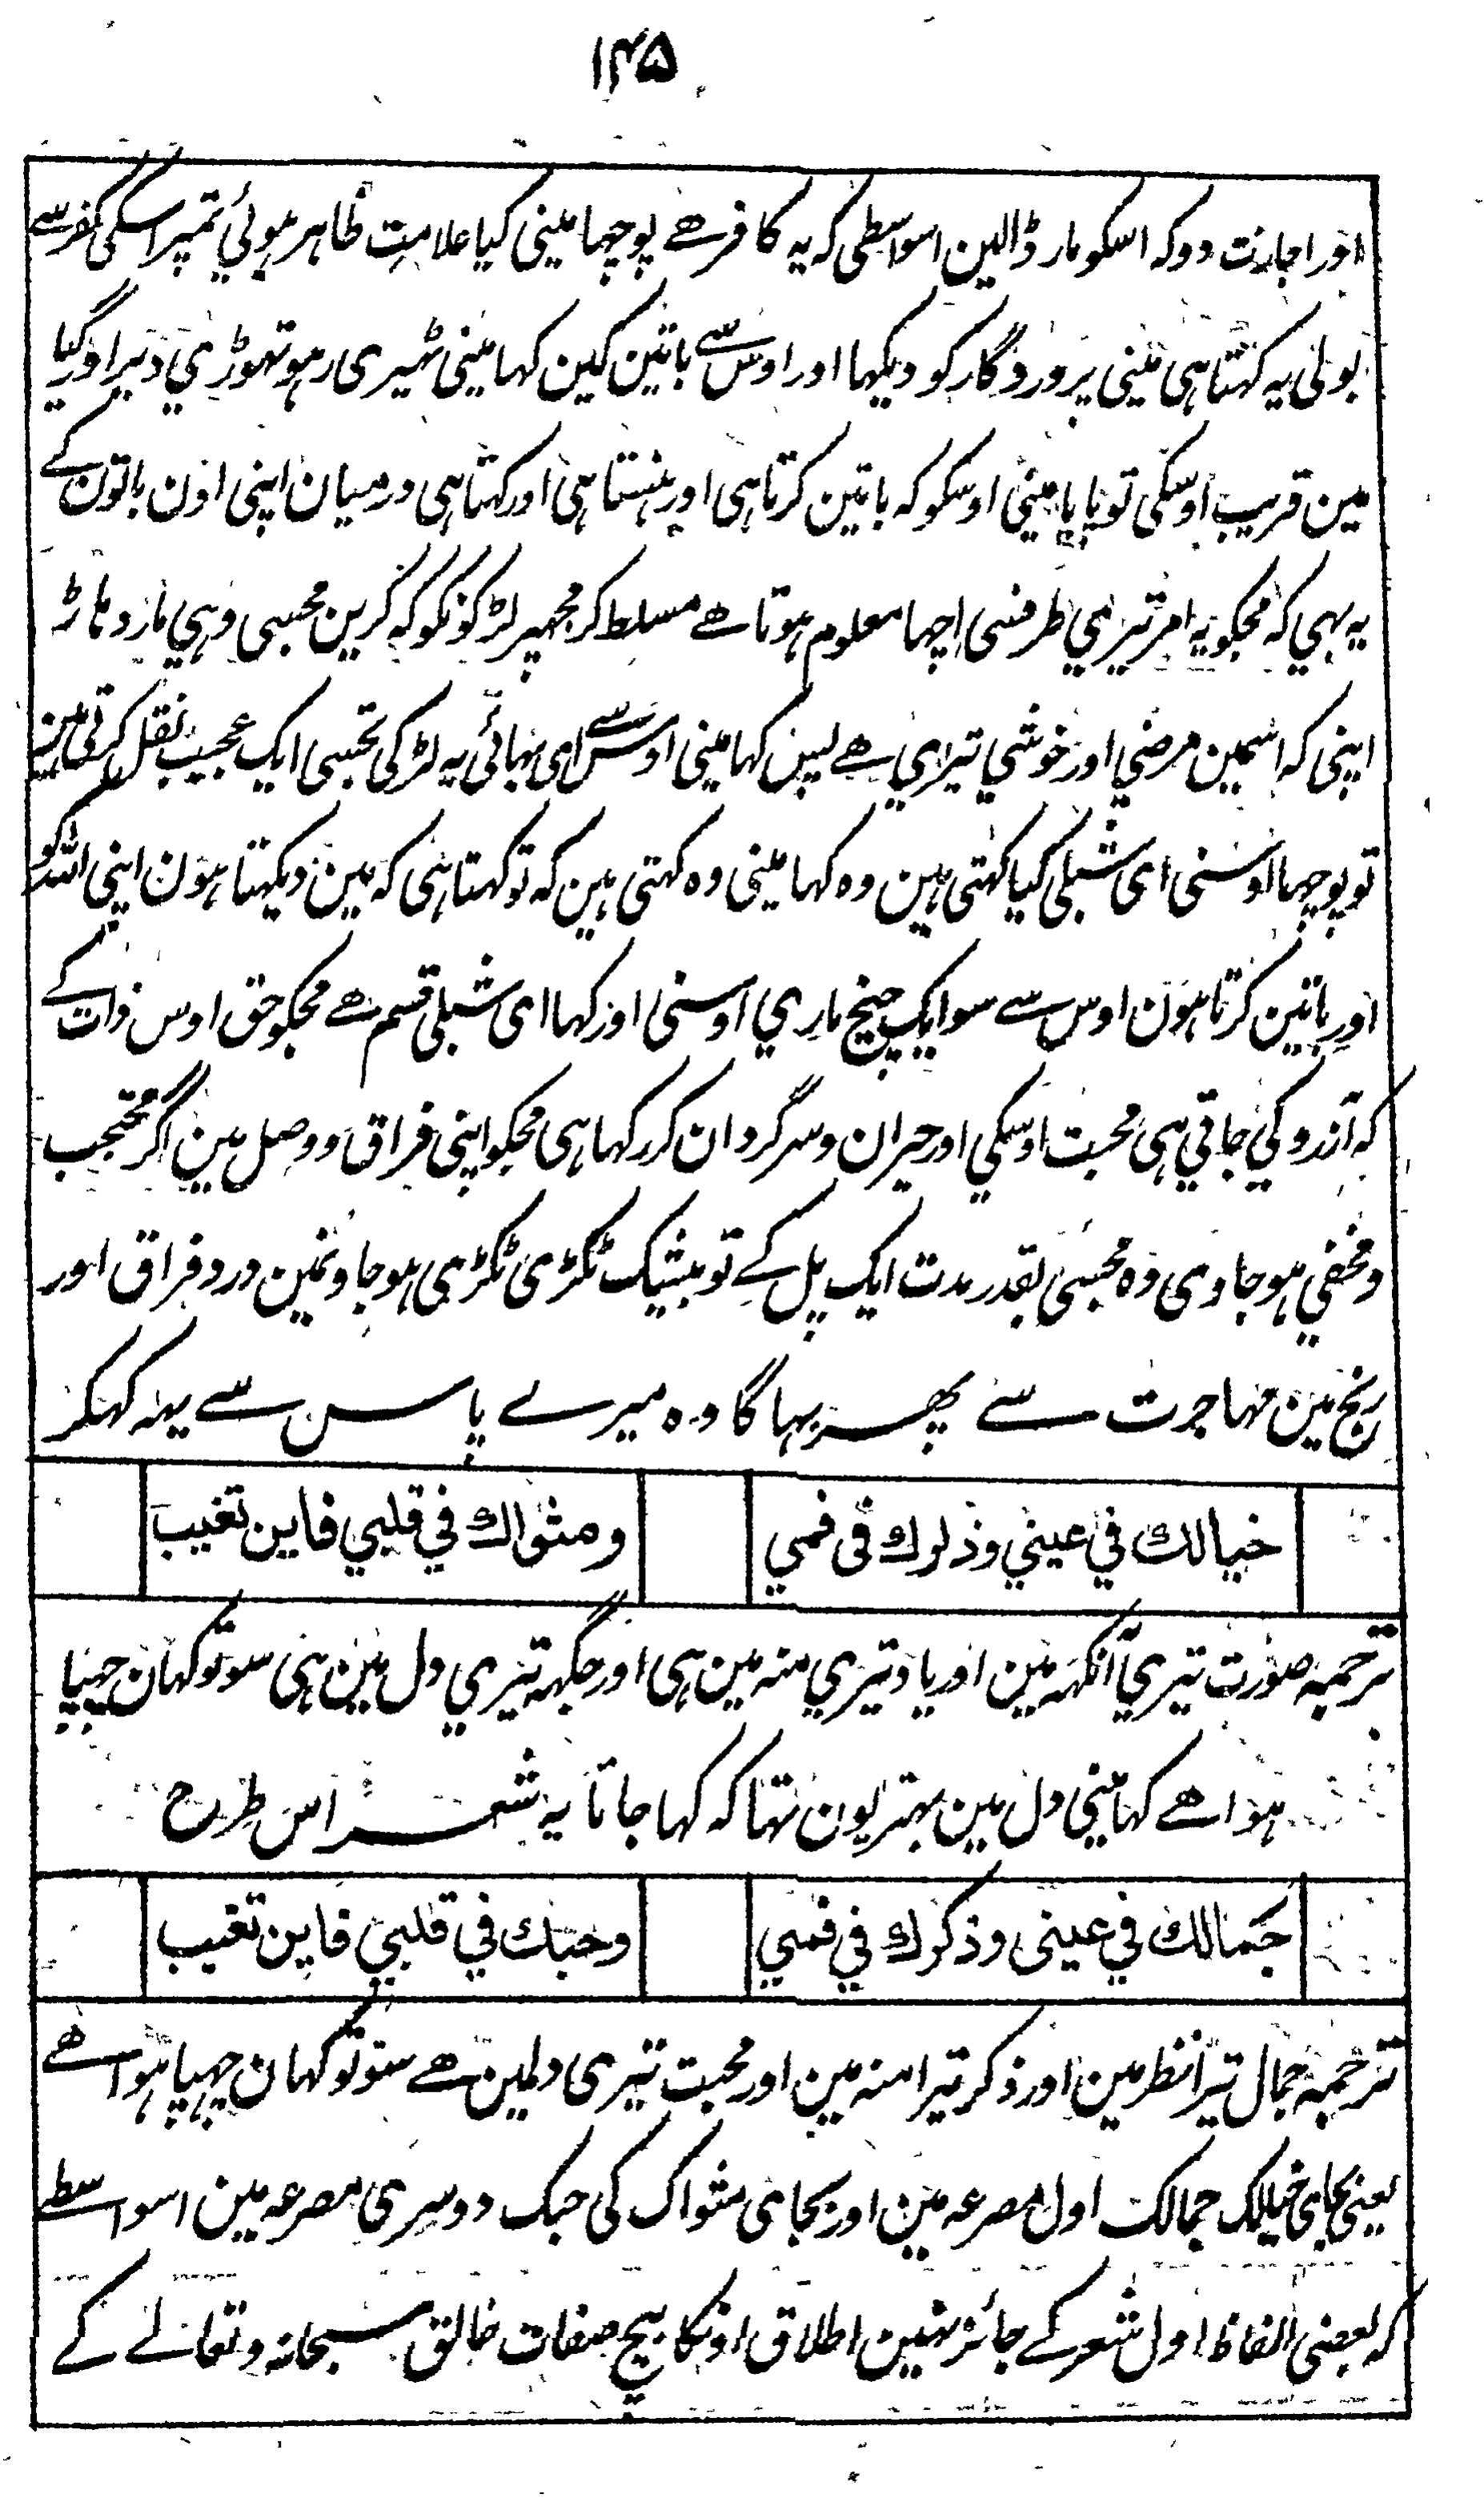 ۱۴۵
اور اجازت دو کہ اسکو مار ڈالین اسواسطی کہ یہ کافر ھے پوچہا مینی کیا علامت ظاہر ہوئي تمپر اسکی کفر سے
بولی یہ کہتا ہی مینی پروردگار کو دیکہا اور اوس سے باتین کین کہا مینی ٹہیری رہو تہوڑي دیر اور گیا
مین قریب اوسکی تو پایا مینی اوسکو کہ باتین کرتا ہی اور ہنستا ہی اور کہتا ہی درمیان اپنی اون باتون کے
یہ بہي کہ مجکو یہ امر تیري طرفسی اچہا معلوم ہوتا ھے مسلط کر مجہپر لڑکونکو کہ کرین مجسی وہي مار دہاڑ
اپنی کہ اسمین مرضي اور خوشي تیري ھے پس کہا مینی اوس سے ای بہائی یہ لڑکی تجسی ایک عجیب نقل کرتی ہین
تو پوچہا اوسنی ای شبلی کیا کہتی ہین وہ کہا مینی وہ کہتی ہین کہ تو کہتا ہی کہ مین دیکہتا ہون اپنی اللہ کو
اور باتین کرتا ہون اوس سے سو ایک چیخ ماري اوسنی اور کہا ای شبلی قسم ھے مجکو حق اوس ذات کے
کہ آرزو کي جاتي ہی محبت اوسکي اور حیران و سرگردان کر رکہا ہی مجکو اپنی فراق و وصل مین اگر محتجب
و مخفي ہو جاوی وہ مجسی بقدر مدت ایک پل کے تو بیشک ٹکڑی ٹکڑی ہو جاونمین درد فراق اور
رنج مین مہاجرت سے پھر بہاگا وہ میرے پاس سے یہہ کہکر
خيالك في عيني وذكرك في فمي ومثواك في قلبي فاين تغيب
ترجمہ صورت تیري آنکہہ مین اور یاد تیري منہ مین ہی اور جگہہ تیري دل مین ہی سو تو کہان چہپا
ہوا ھے کہا مینی دل مین بہتر یون تہا کہ کہا جاتا یہ شعر اس طرح
جمالك في عيني وذكرك في فمي وحبك في قلبي فاين تغيب
ترجمہ جمال تیرا نظر مین اور ذکر تیرا منہ مین اور محبت تیری دلمین ھے سو تو کہان چہپا ہوا ھے
یعنی بجای خیالک جمالک اول مصرعہ مین اور بجای مثواک کی حبک دوسری مصرعہ مین اسواسطے
کہ بعضی الفاظ اول شعر کے جائز نہین اطلاق اونکا بیچ صفات خالق سبحانہ و تعالے کے